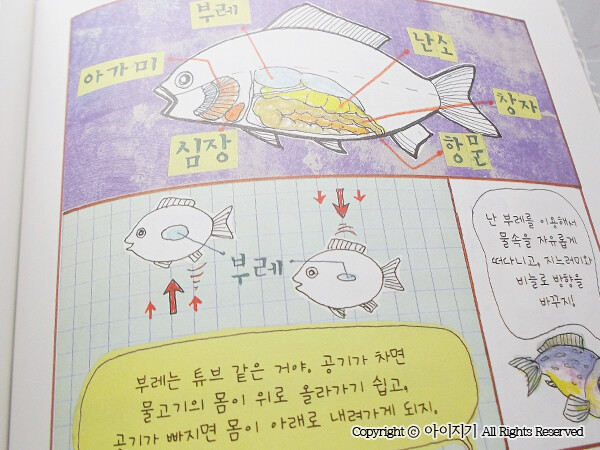 부레
난소
아가미
창자
심장
항문
부레
난 부레를 이용해서
물속을 자유롭게
떠다니고, 지느러미와
비늘로 방향을
바꾸지!
부레는 튜브 같은 거야. 공기가 차면
물고기의 몸이 위로 올라가기 쉽고,
공기가 빠지면 몸이 아래로 내려가게 되지.
Copyright ⓒ 아이지기 All Rights Reserved